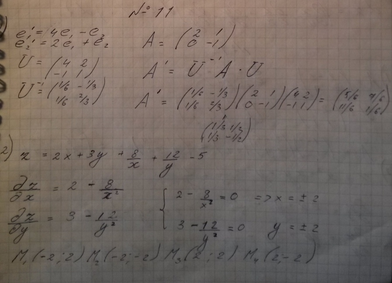 № 11
e₁' = 4e₁ - e₂
e₂' = 2e₁ + e₂
A = (2 1; 0 -1)
U = (4 2; -1 1)
A' = U⁻¹ A · U
U⁻¹ = (1/6 -1/3; 1/6 2/3)
A' = (1/6 -1/3; 1/6 2/3)(2 1; 0 -1)(4 2; -1 1) =
2) z = 2x + 3y + 8/x + 12/y - 5
∂z/∂x = 2 - 8/x²
2 - 8/x² = 0 => x = ±2
∂z/∂y = 3 - 12/y²
3 - 12/y² = 0 y = ±2
M₁(-2; 2) M₂(-2; -2) M₃(2; 2) M₄(2; -2)